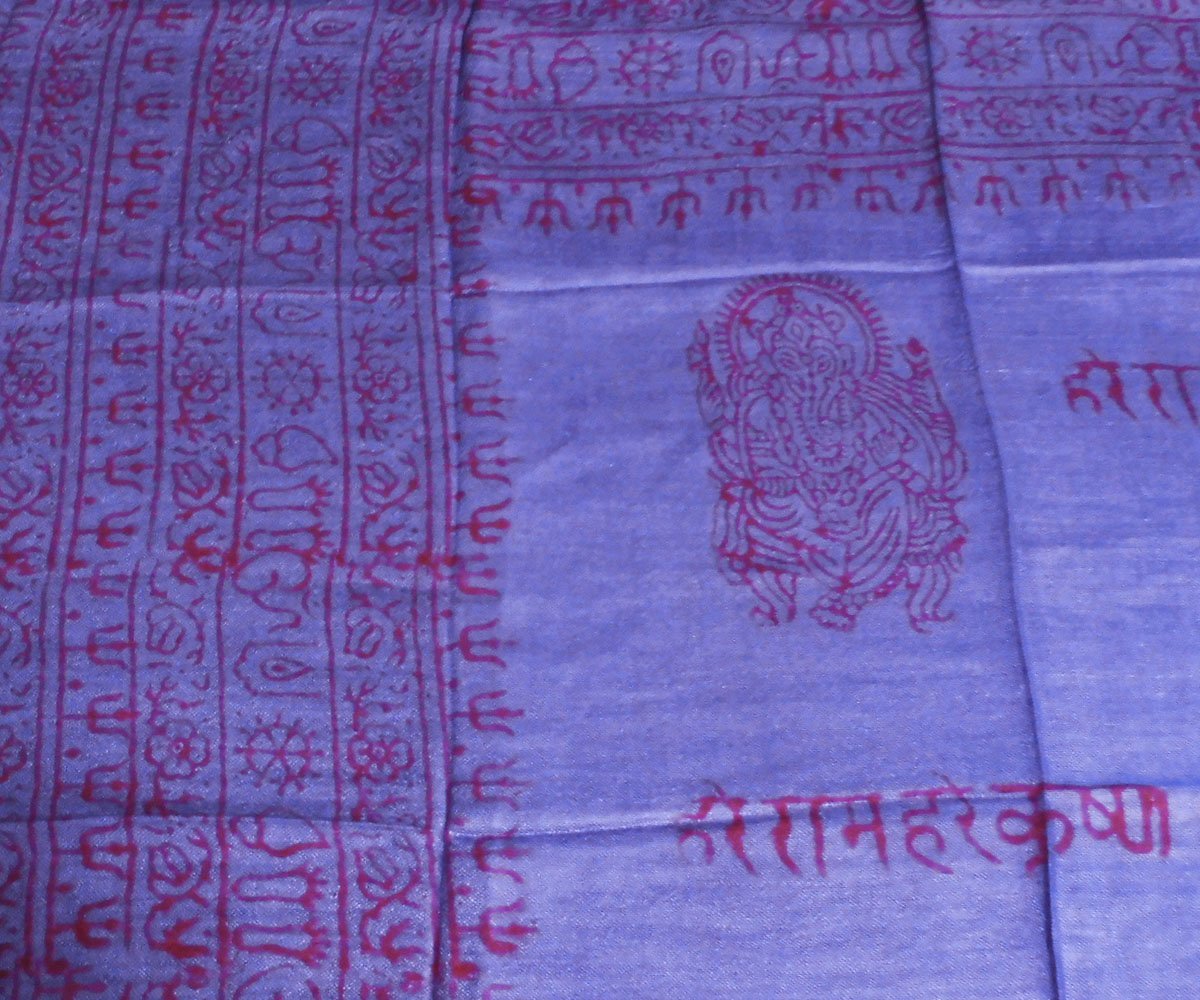 हरे रा
हरे राम हरे कृष्ण